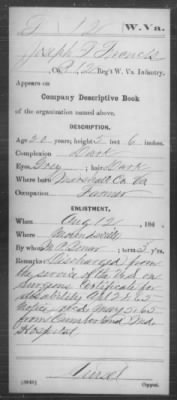 F 12 W.Va.
Joseph T Francis
Co. B, 12 Reg't W. Va. Infantry.
Appears on
Company Descriptive Book
of the organization named above.
DESCRIPTION.
Age 20 years; height 5 feet 6 inches.
Complexion Dark
Eyes Grey; hair Dark
Where born Marshall Co. Va
Occupation Farmer
ENLISTMENT.
When Aug 12, 186
Where Moundsville
By whom; term 3 y'rs.
Remarks: Discharged from
the service of the U.S. on
Surgeons Certificate for
disability
from Cumberland Md.
Hospital
Copyist.